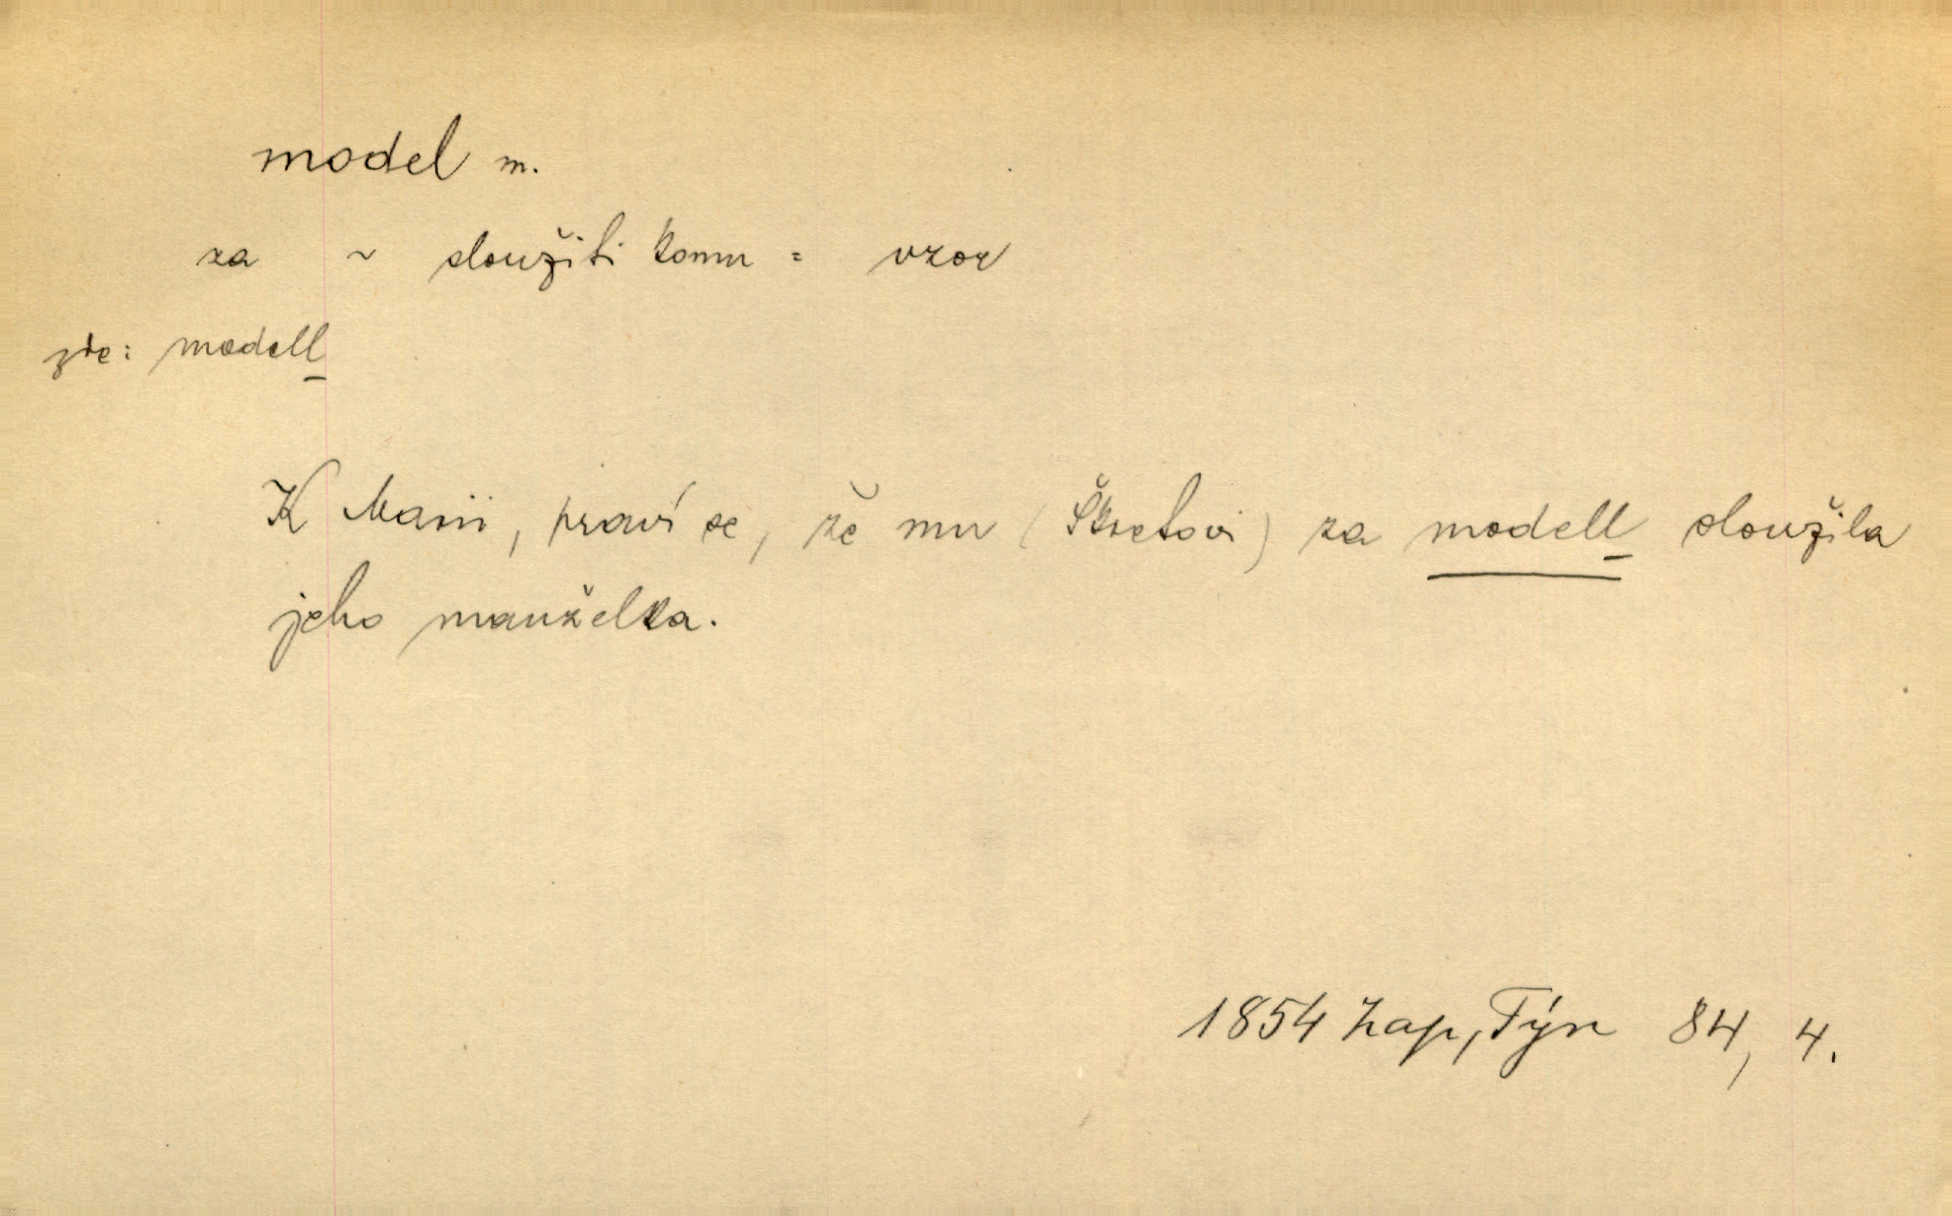 model m.
za ~ sloužiti komu = vzor
zde: modell
K Marii, praví se, že mu (Škretovi) za modell sloužila
jeho manželka.
1854 Zap, Týn 84, 4.